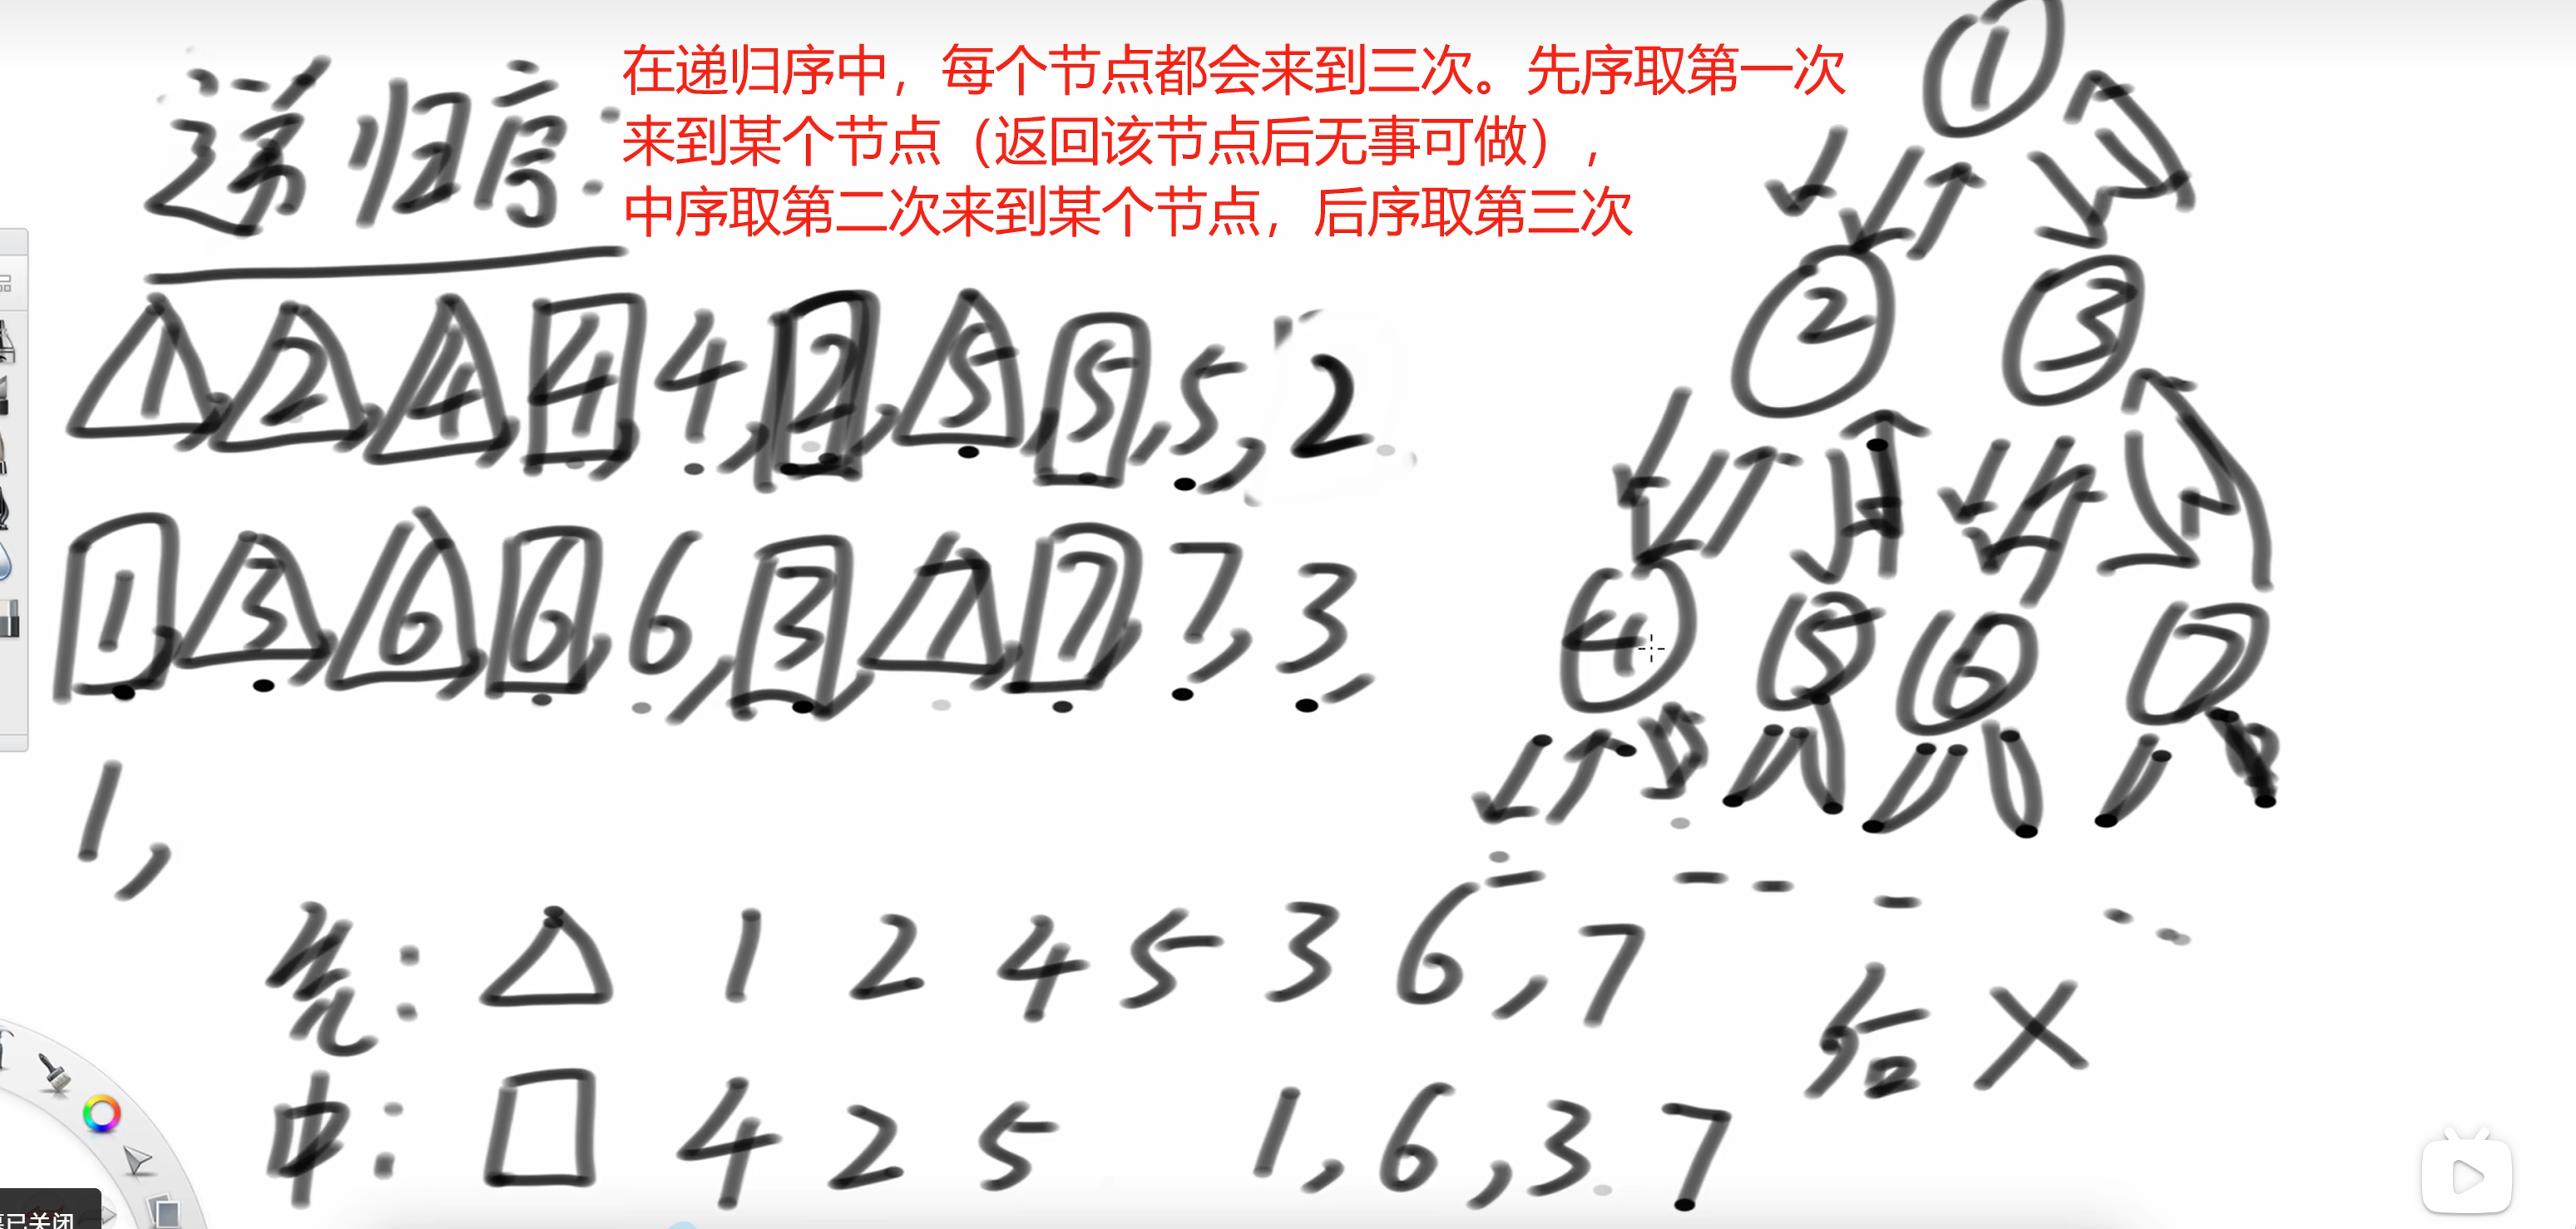 递归序:
在递归序中，每个节点都会来到三次。先序取第一次
来到某个节点（返回该节点后无事可做），
中序取第二次来到某个节点，后序取第三次
1, 2, 4, 4, 4, 2, 5, 5, 5, 2
1, 3, 6, 6, 6, 3, 7, 7, 7, 3,
1,
先: △ 1 2 4 5 3 6, 7
中: □ 4 2 5 1, 6, 3 7
1
2 3
4 5 6 7
后 X
已关闭